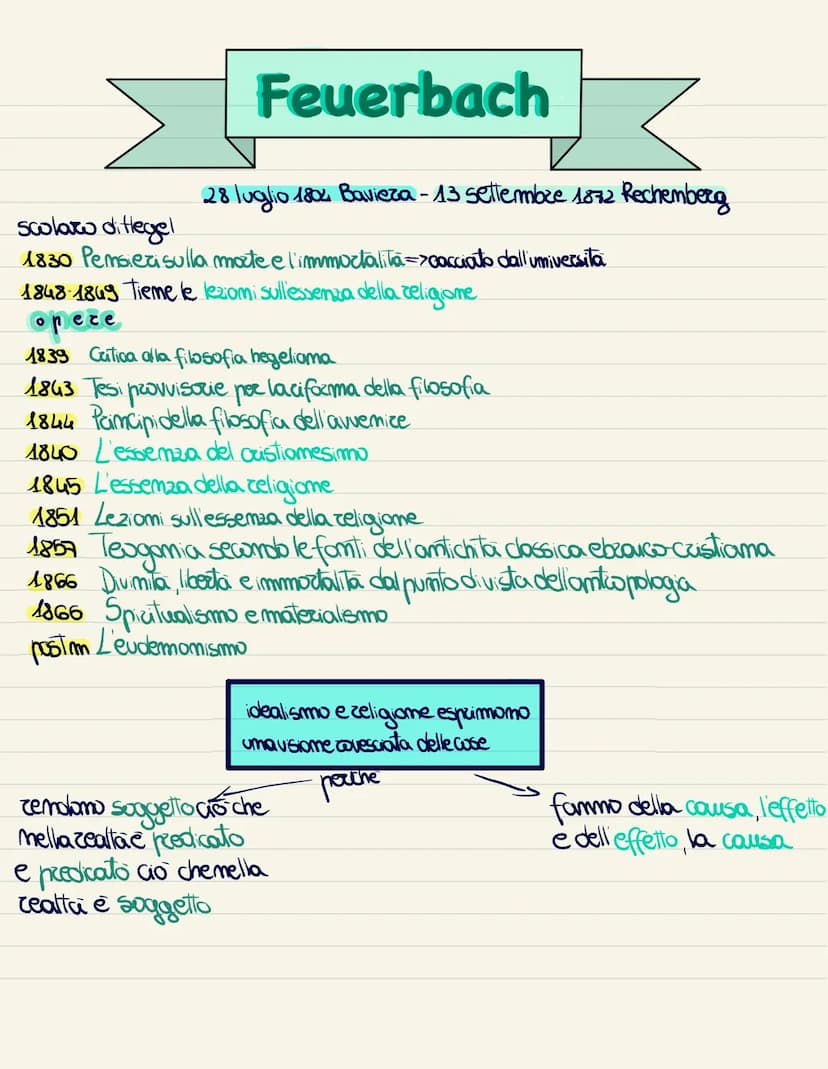 Feuerbach
28 luglio 1804 Baviera - 13 settembre 1872 Rechemberg
scolaro di Hegel
1830 Pensieri sulla morte e l'immortalità => cacciato dall'università
1848-1849 Tiene le lezioni sull'essenza della religione
opere
1839 Critica alla filosofia hegeliana
1843 Tesi provvisorie per la riforma della filosofia
1844 Principi della filosofia dell'avvenire
1840 L'essenza del cristianesimo
1845 L'essenza della religione
1851 Lezioni sull'essenza della religione
1857 Teogonia secondo le fonti dell'antichità classica ebraico-cristiana
1866 Divinità, libertà e immortalità dal punto di vista dell'antropologia
1866 Spiritualismo e materialismo
postm L'eudemonismo
idealismo e religione esprimono
una visione rovesciata delle cose
perché
rendono soggetto ciò che
nella realtà è predicato
e predicato ciò che nella
realtà è soggetto
fanno della causa, l'effetto
e dell'effetto, la causa